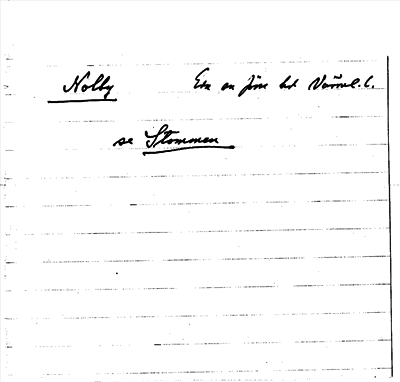 Nolby Eda sn Jösse hd Värml. l.
se Stommen